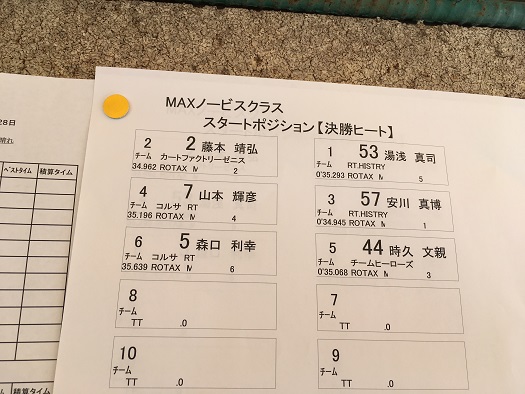 MAXノービスクラス
スタートポジション【決勝ヒート】
2 2 藤本 靖弘
チーム カートファクトリーゼニス
34.962 ROTAX M 2
1 53 湯浅 真司
チーム RT.HISTRY
0'35.293 ROTAX M 5
4 7 山本 輝彦
チーム コルサ RT
35.196 ROTAX M 4
3 57 安川 真博
チーム RT.HISTRY
0'34.945 ROTAX M 1
6 5 森口 利幸
チーム コルサ RT
35.639 ROTAX M 6
5 44 時久 文親
チーム チームヒーローズ
0'35.068 ROTAX M 3
8
チーム
TT .0
7
チーム
TT .0
10
チーム
TT .0
9
チーム
TT .0
28日
晴れ
ベストタイム 積算タイム
積算タイム